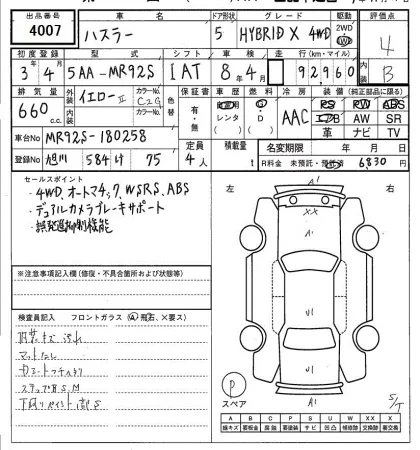 出品番号 車名 ドア形状 グレード 駆動 評価点
4007 ハスラー 5 HYBRID X 4WD 2WD 4WD 4
初度登録 型式 シフト 車検 走行(km・マイル) 内装
3年 4月 5AA-MR92S IAT 8年 4月 92,960 B
排気量 外装 色 カラーNo. 色替 保証書 車歴 燃料 冷房 装備(純正部品に限る)
660 c.c. イエローII C2G 有・無 自家用 レンタ G・D AAC PS PW ABS
内装 カラーNo. エアB AW SR
革 ナビ TV
車台No. MR92S-180258 定員 積載量 名変期限 年 月 日
登録No. 旭川 584 け 75 4人 t R料金 未預託・預託済 6830 円
セールスポイント
・4WD、オートマチック、WSRS、ABS
・デュアルカメラブレーキサポート
・誤発進抑制機能
※注意事項記入欄(修復・不具合箇所および状態等)
検査員記入 フロントガラス(A 飛石、×要ス)
内装キズ 汚れ
マットなし
ステップ
下廻り
左 右
A1
XX
U1
U1
A1
P
スペア
S/T
A B C P S U W X XX
線キズ 要板金 腐蝕 要塗装 サビ 凹凸 補修跡 交換跡 要交換